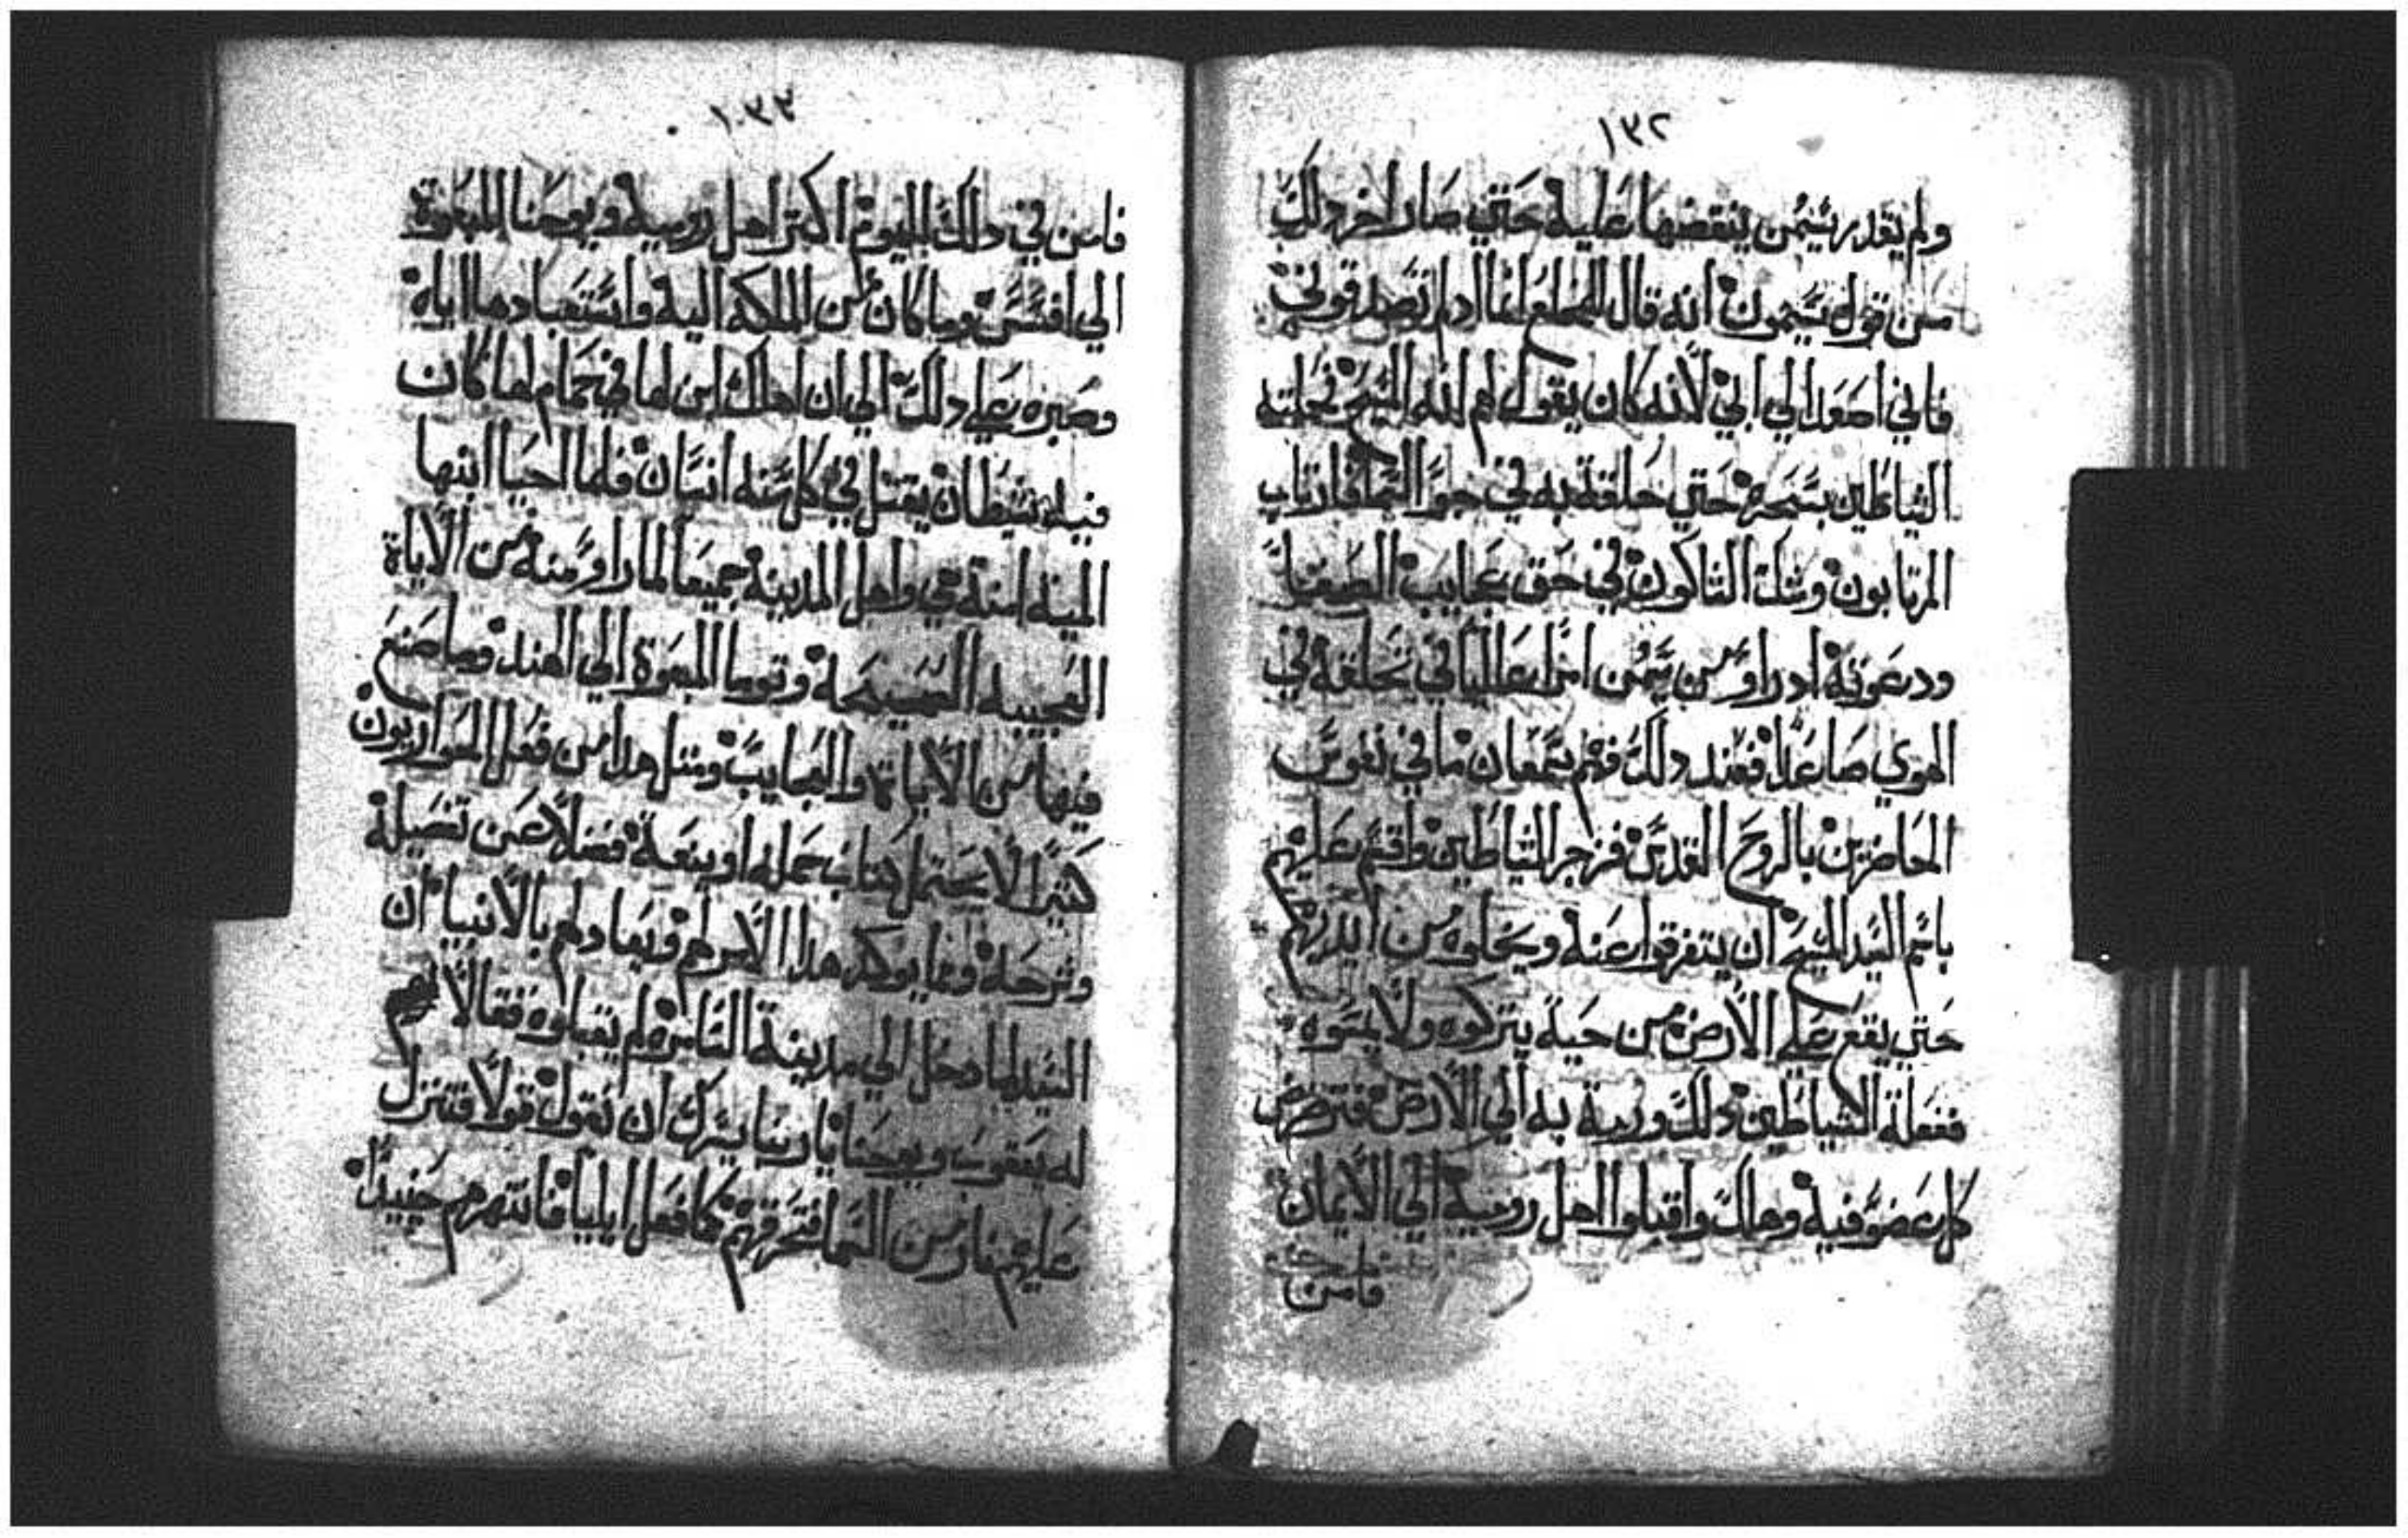 ١٣٢
ولم يقدر سيمن ينقضها عليه حتي صار اخر دلك
من قول سيمون انه قال للمخلع انا ادلم تصدقوني
فاني اصعد الي ابي لانه كان يقول لهم انه المسيح فحملته
الشياطين بسحره حتي حلقة به في جو السما فارتاب
المرتابون وشك الشاكون في حق عجايب الصفا
ودعوته ادراو من سيمن امرا عاليا في تحلقه في
الهوي صاعدا فعند دلك فهم سمعان ما في نفوس
الحاضرين بالروح القدس فزجر الشياطين واقسم عليهم
باسم السيد المسيح ان يتفرقوا عنه ويخلوه من ايديهم
حتي يقع علي الارض من حية يتركوه ولا يمسوه
ففعلة الشياطين دلك ورمة به الي الارض فترضض
كل عضو فيه وهلك واقبلوا اهل رومية الي الايمان
فامن
١٠٣٣
فامن في دلك اليوم اكتر اهل رومية ويوحنا المبعوة
الي افسس وما كان من الملكه اليه واستعبادها اياه
وصبره علي دلك الي ان اهلك ابن لها في حمام لها كان
فيه شيطان يقتل في كل سنه انسان فلما احيا ابنها
الميته امنة هي واهل المدينة جميعا لما راو منه من الاياة
العجيبه الصحيحة وتوما المبعوة الي الهند وما صنع
فيها من الاياة والعجايب ومتل هدا من فعل الحواريون
كتيرا لا يحتمل كتاب جمله او ينعة فضلا عن تفصيلة
وشرحة ومما يوكد هدا الامر لهم وبعادلهم بالانبيا ان
السيد لما دخل الي مدينة السامرة لم يقبلوه فقالا لهم
له يعقوب ويوحنا يا ربنا يسرك ان نقول قولا فتنزل
عليهم نار من السما فتحرقهم كما فعل ايليا فانتهرهم حينيدا